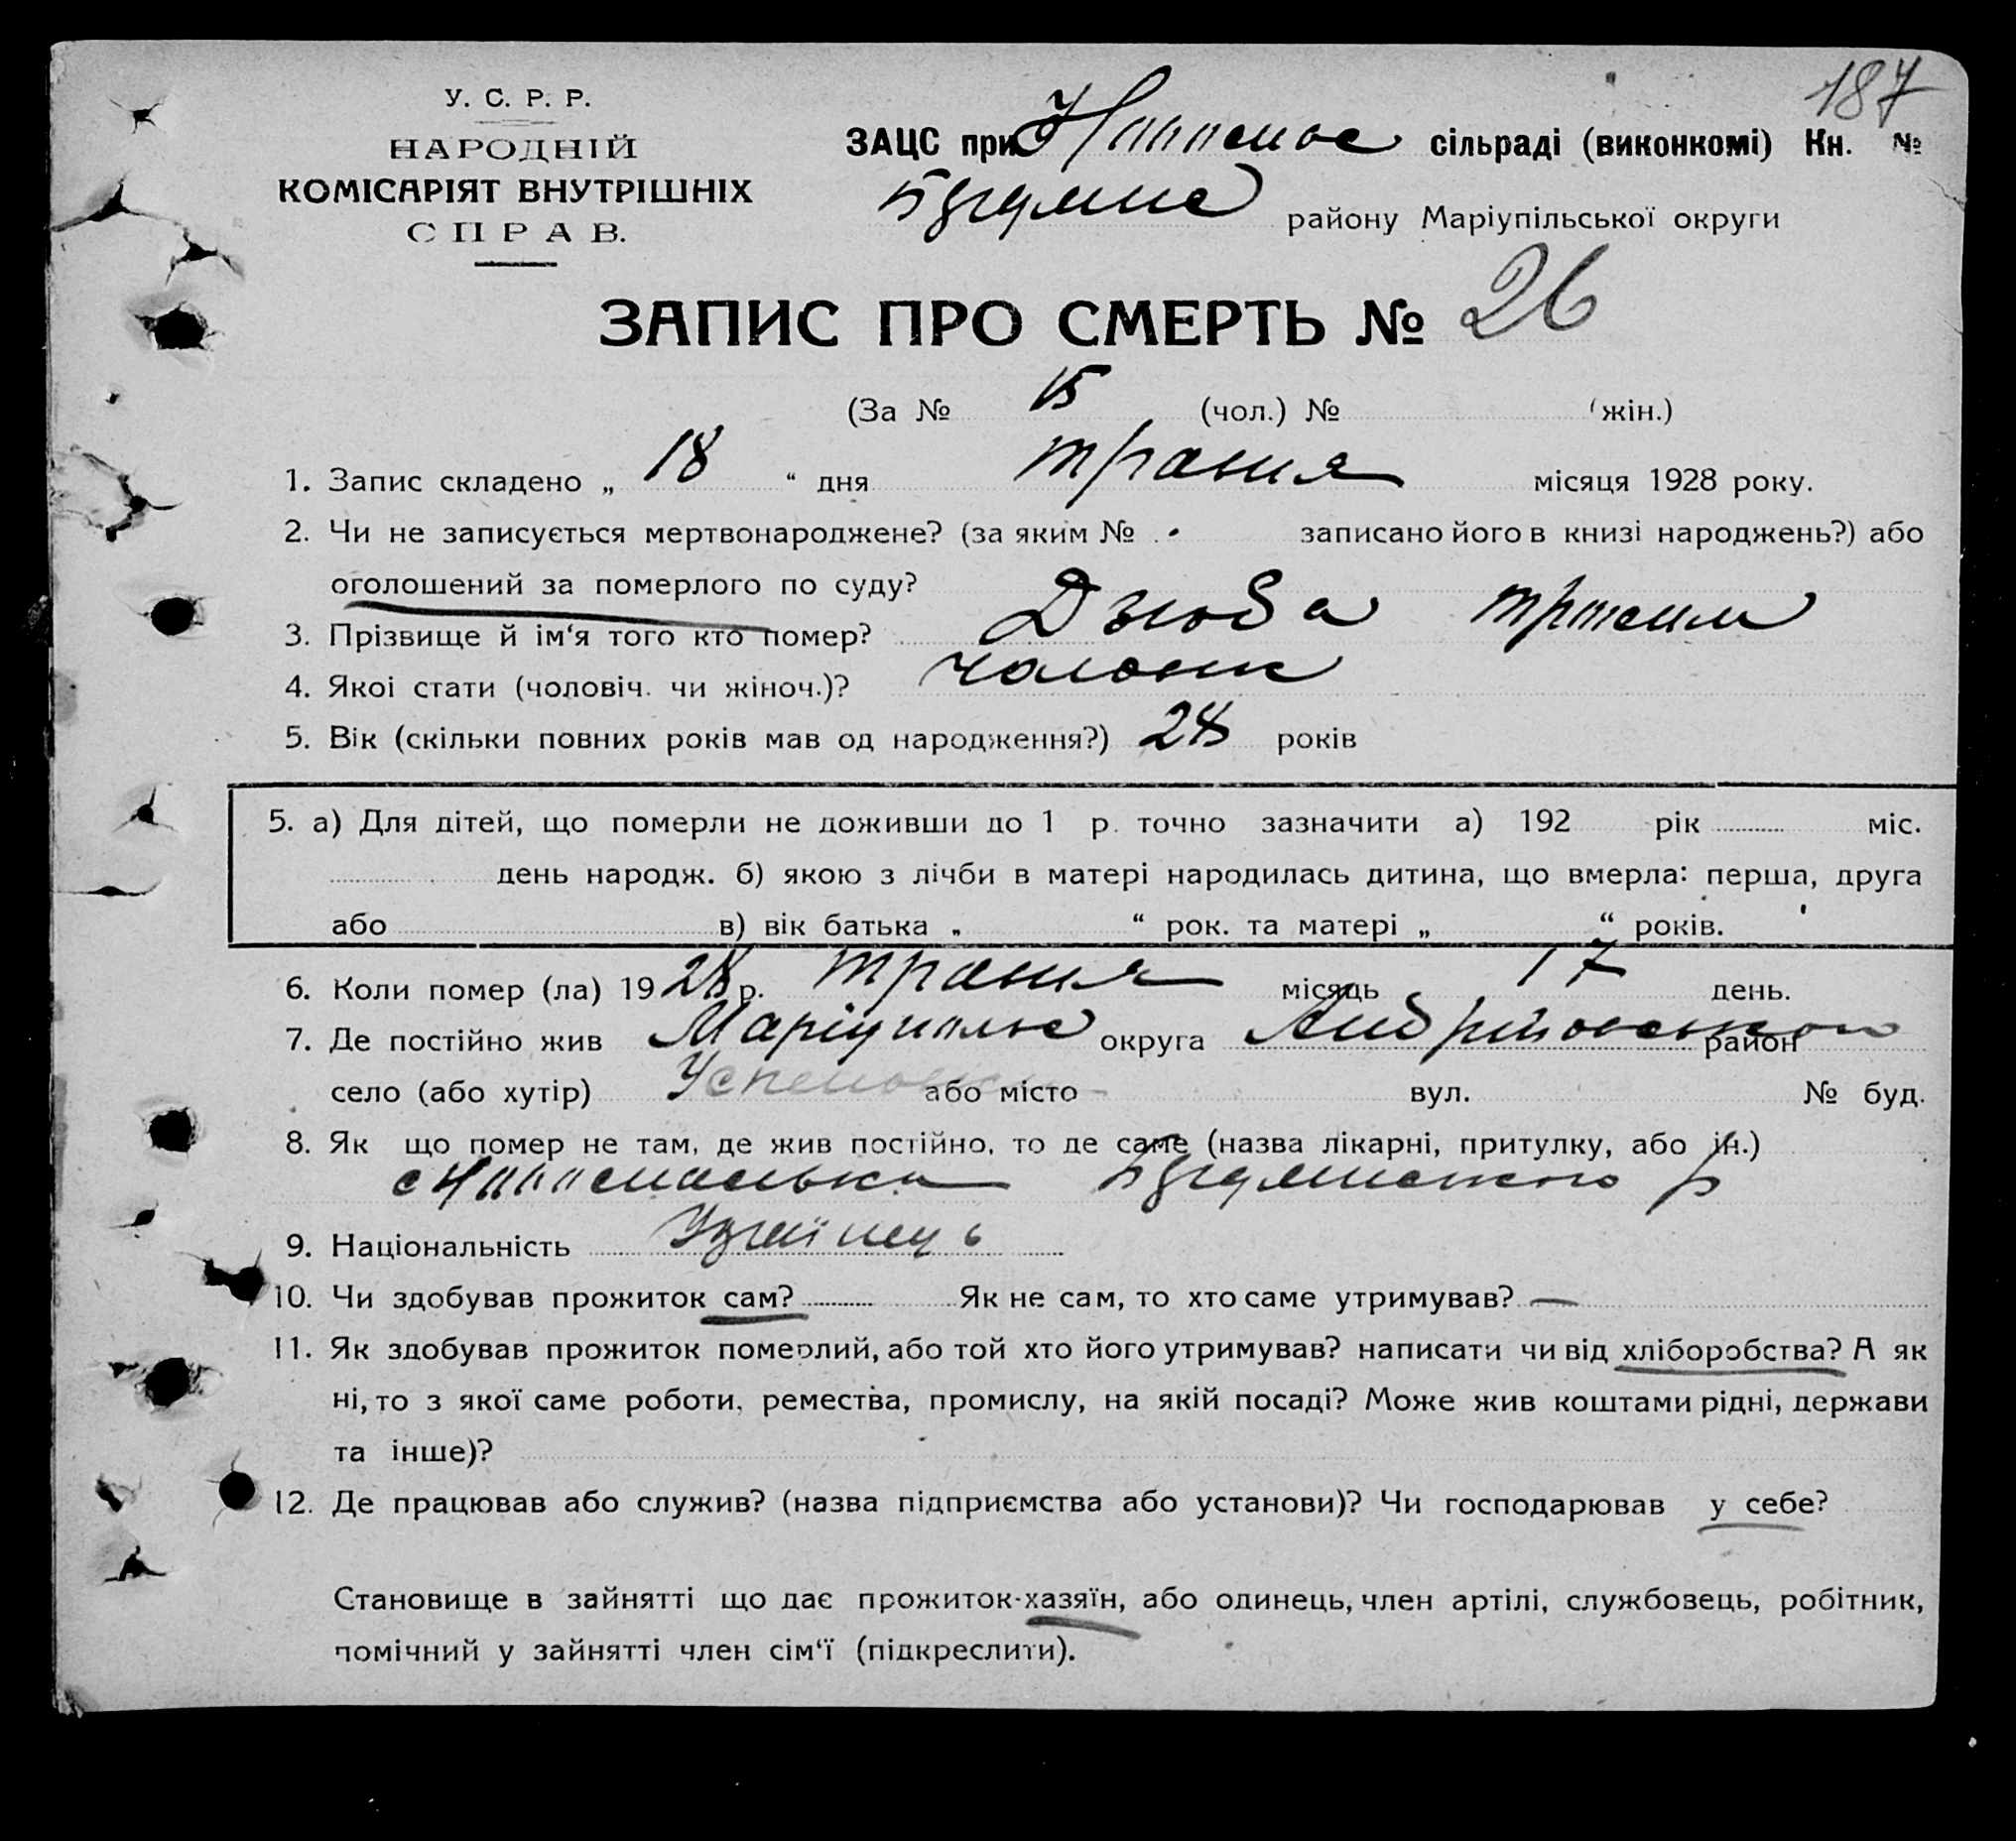 187
У. С. Р. Р.
НАРОДНІЙ
КОМІСАРІЯТ ВНУТРІШНІХ
СПРАВ.
ЗАЦС при сільраді (виконкомі) Кн. №
району Маріупільської округи
ЗАПИС ПРО СМЕРТЬ № 26
(За № 15 (чол.) № (жін.)
1. Запис складено „ 18 “ дня травня місяця 1928 року.
2. Чи не записується мертвонароджене? (за яким № записано його в книзі народжень?) або
оголошений за померлого по суду?
3. Прізвище й ім‘я того кто помер? Дзюба
4. Якої стати (чоловіч. чи жіноч.)?
5. Вік (скільки повних років мав од народження?) років
5. а) Для дітей, що померли не доживши до 1 р. точно зазначити а) 192 рік міс.
день народж. б) якою з лічби в матері народилась дитина, що вмерла: перша, друга
або в) вік батька „ “ рок. та матері „ “ років.
6. Коли помер (ла) 1928 р. травня місяць 17 день.
7. Де постійно жив Маріупільс округа район
село (або хутір) Успеновка або місто вул. № буд.
8. Як що помер не там, де жив постійно, то де саме (назва лікарні, притулку, або ін.)
9. Національність Українець
10. Чи здобував прожиток сам? Як не сам, то хто саме утримував? —
11. Як здобував прожиток померлий, або той хто його утримував? написати чи від хліборобства? А як
ні, то з якої саме роботи, ремества, промислу, на якій посаді? Може жив коштами рідні, держави
та інше)?
12. Де працював або служив? (назва підприємства або установи)? Чи господарював у себе?
Становище в зайнятті що дає прожиток-хазяїн, або одинець, член артілі, службовець, робітник,
помічний у зайнятті член сім‘ї (підкреслити).